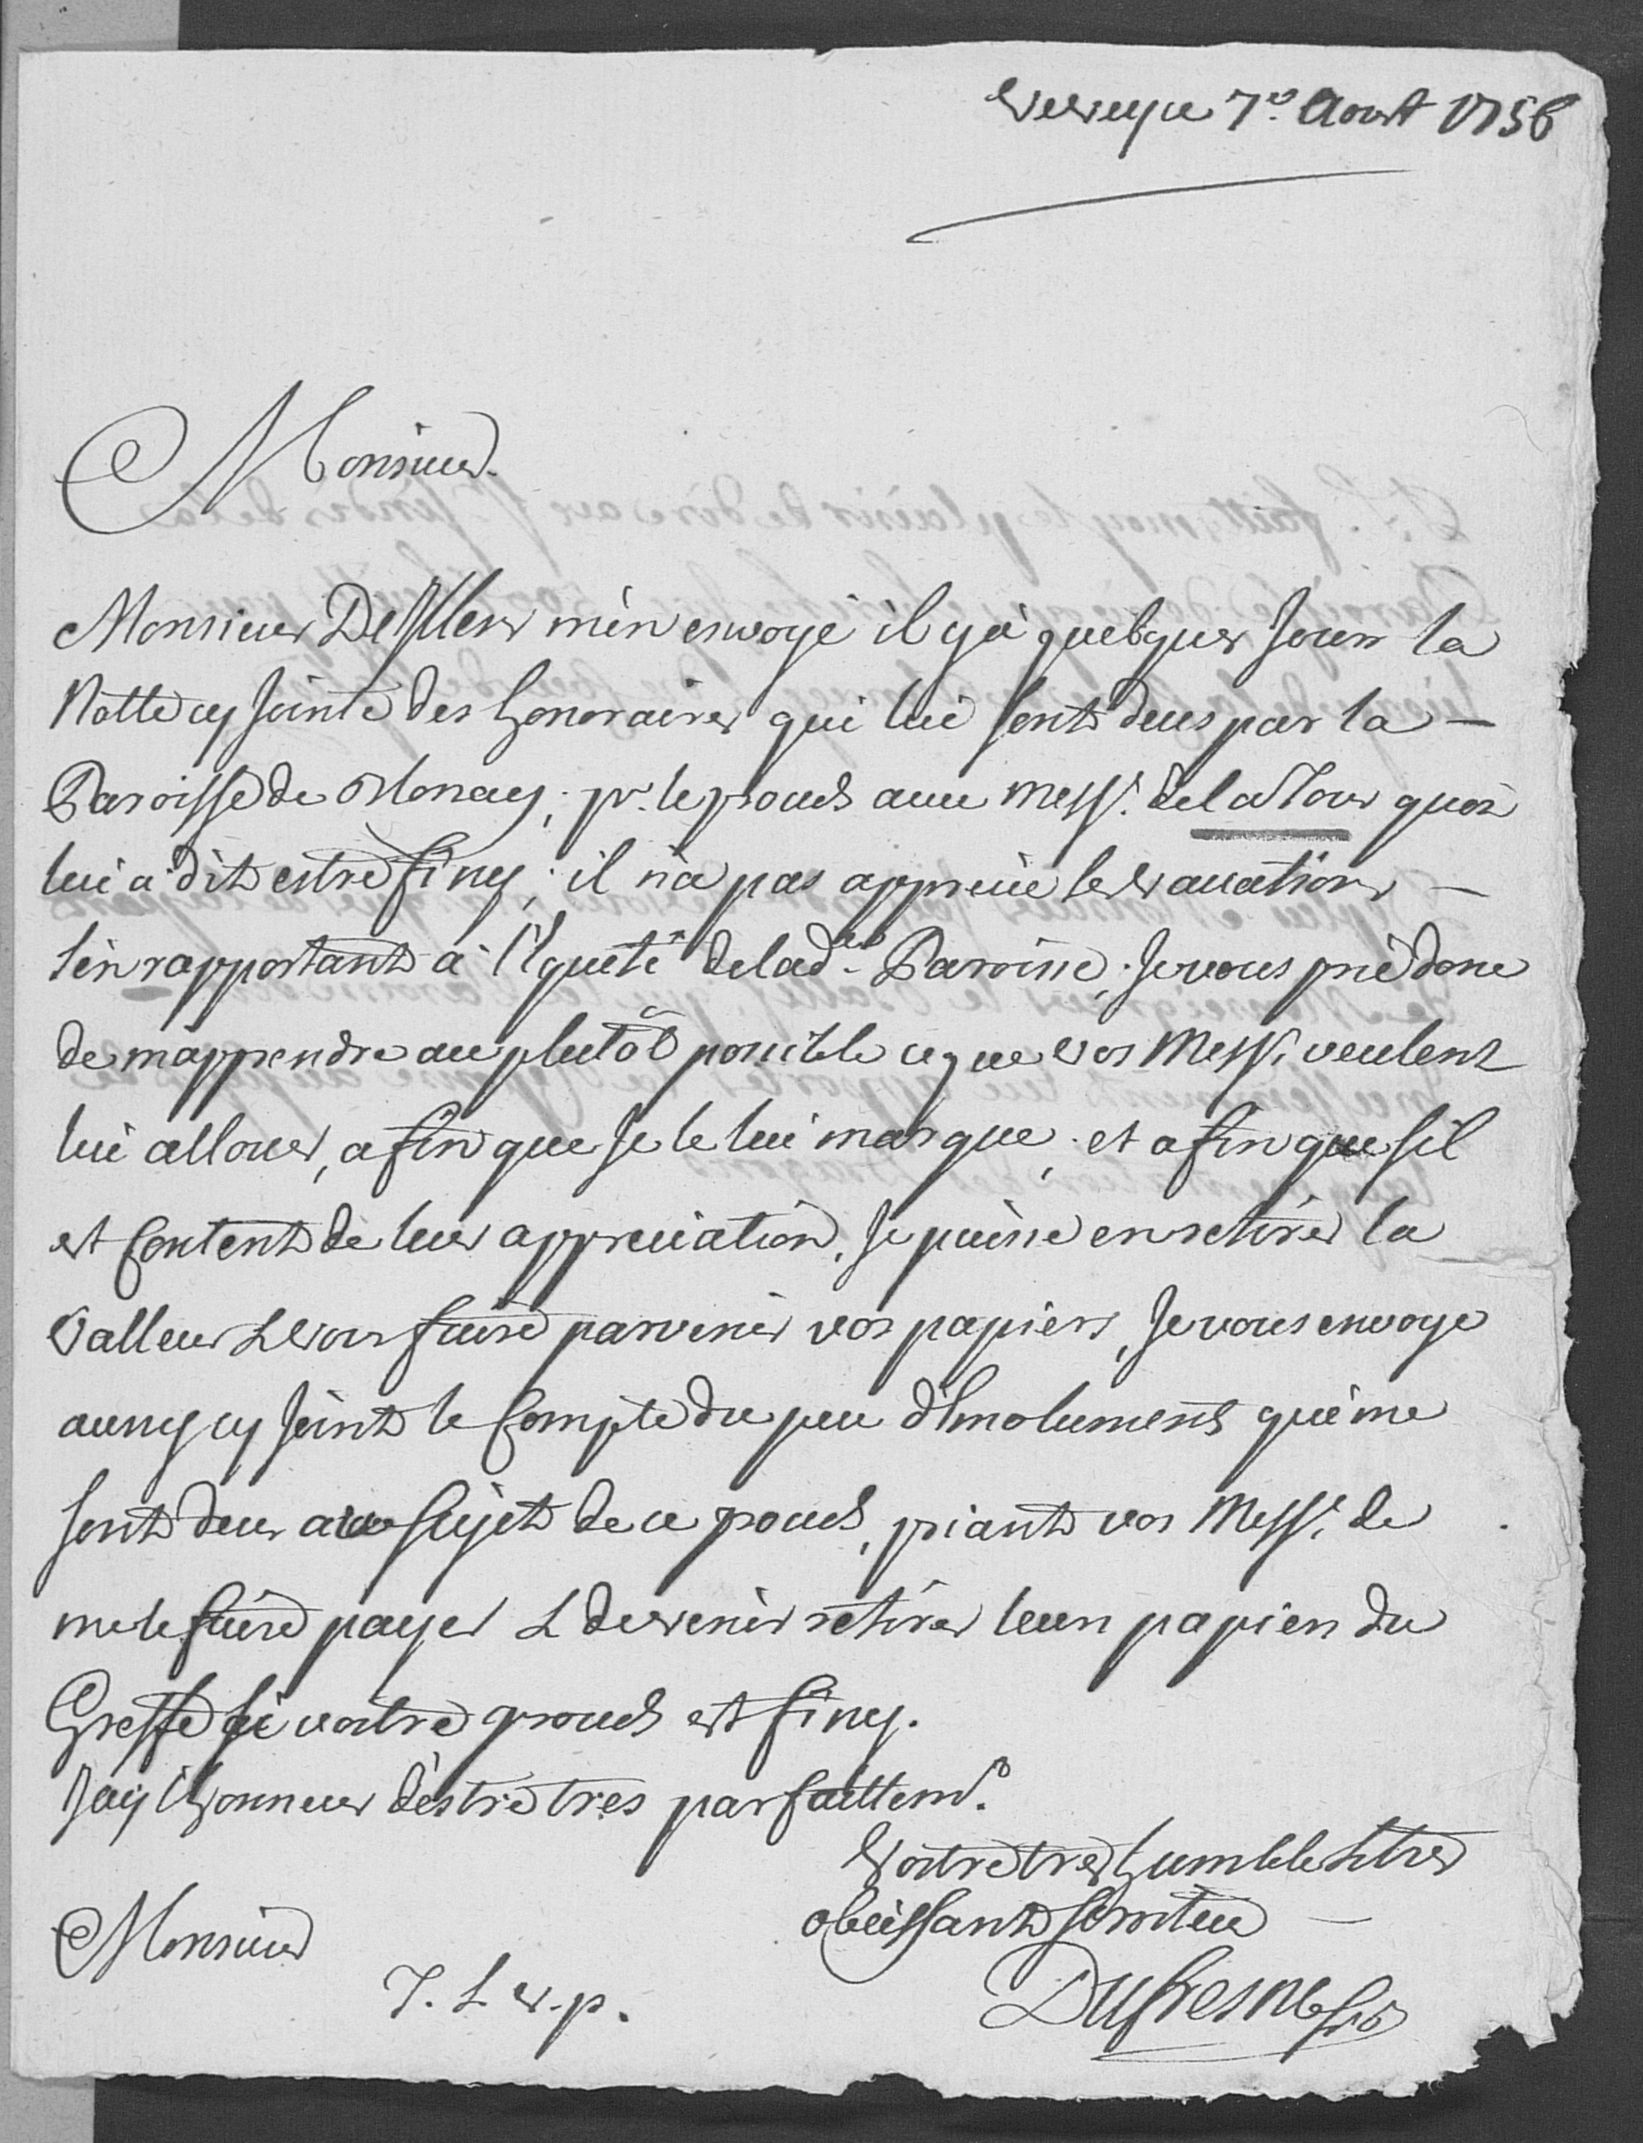 Vevey ce 7e. Aout 1756
Monsieur.
Monsieur DeIllens m'en envoyé il y à quelques Jours la
Notte cy Jointe des honoraires qui lui sont deus par la —
Paroisse de Blonay, pr. le procés avec Messrs. de la Tour quon
lui a dit estre finy, il n'a pas apprecié les vacations —
s'en rapportant à l'Equité de lade. Paroisse, Je vous prie donc
de m'apprendre au plutôt possible ce que vos Messrs. veulent
lui allouer, afin que Je le lui marque, et afin que sil
est Content de leur appreciation, Je puisse en retirer la
Valleur & vous faire parvenir vos papiers, Je vous envoye
aussy cy Joint le Compte du peu d'Emoluments qui me
sont deus au sujet de ce procés, priant vos Messrs. de
me le faire payer & de venir retirer leurs papiers du
Greffe si vostre procés est finy.
Jay l'honneur d'estre tres parfaittemt.
Vostre tres humble & tres
obeissant serviteur —
Monsieur
T. S. v. p.
Dufresne